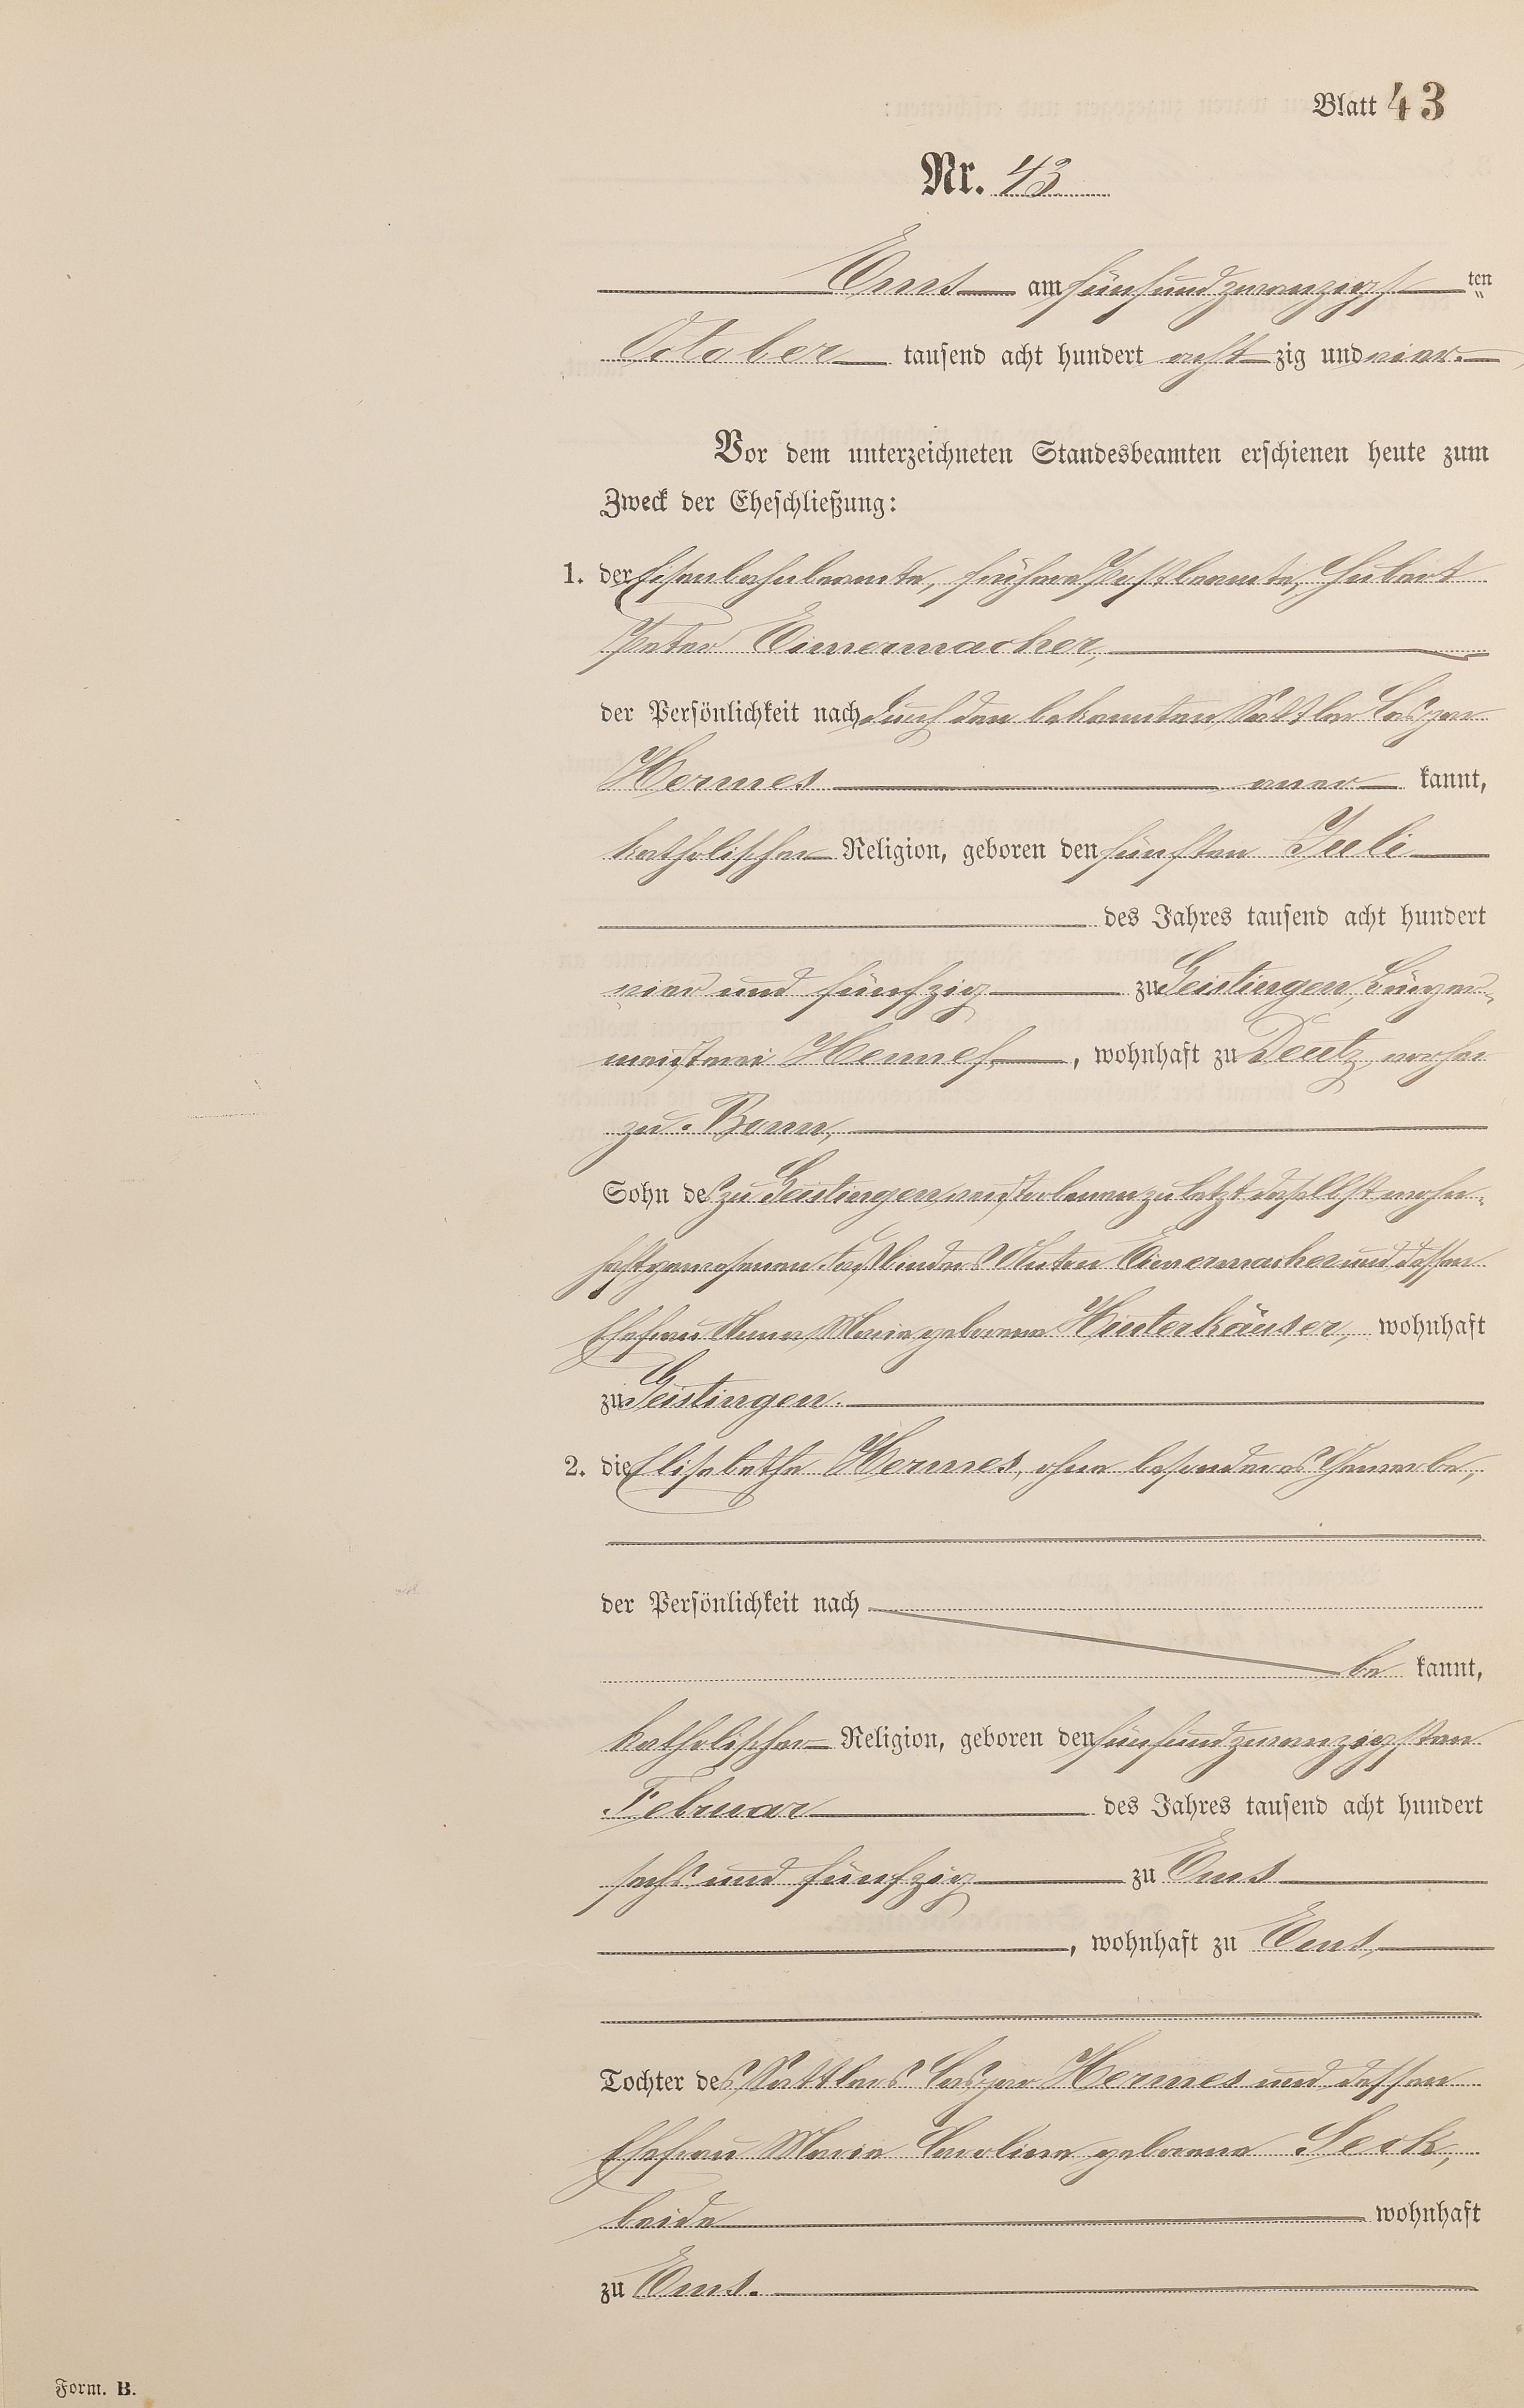 Blatt 43
Nr. 43
Ems am fünfundzwanzigsten
October tausend acht hundert acht zig und vier.
Vor dem unterzeichneten Standesbeamten erschienen heute zum
Zweck der Eheschließung:
1. der Eisenbahnbeamte, frühere Postbeamte, Hubert
Peter Eimermacher,
der Persönlichkeit nach durch den bekannten Sattler Caspar
Hermes aner kannt,
katholischer Religion, geboren den fünften Juli
des Jahres tausend acht hundert
vier und fünfzig zu Geistingen, Bürger-
meisterei Hennef, wohnhaft zu Deutz, vorher
zu Bonn,
Sohn des zu Geistingen verstorbenen zuletzt daselbst wohn-
haft gewesenen Faßbinders Anton Eimermacher und dessen
Ehefrau Anna Maria geborene Hinterkäuser, wohnhaft
zu Geistingen.
2. die Elisabetha Hermes, ohne besonderes Gewerbe,
der Persönlichkeit nach
be kannt,
katholischer Religion, geboren den fünfundzwanzigsten
Februar des Jahres tausend acht hundert
sechs und fünfzig zu Ems
, wohnhaft zu Ems,
Tochter des Sattlers Caspar Hermes und dessen
Ehefrau Maria Carolina geborene Seck,
beide wohnhaft
zu Ems.
Form. B.